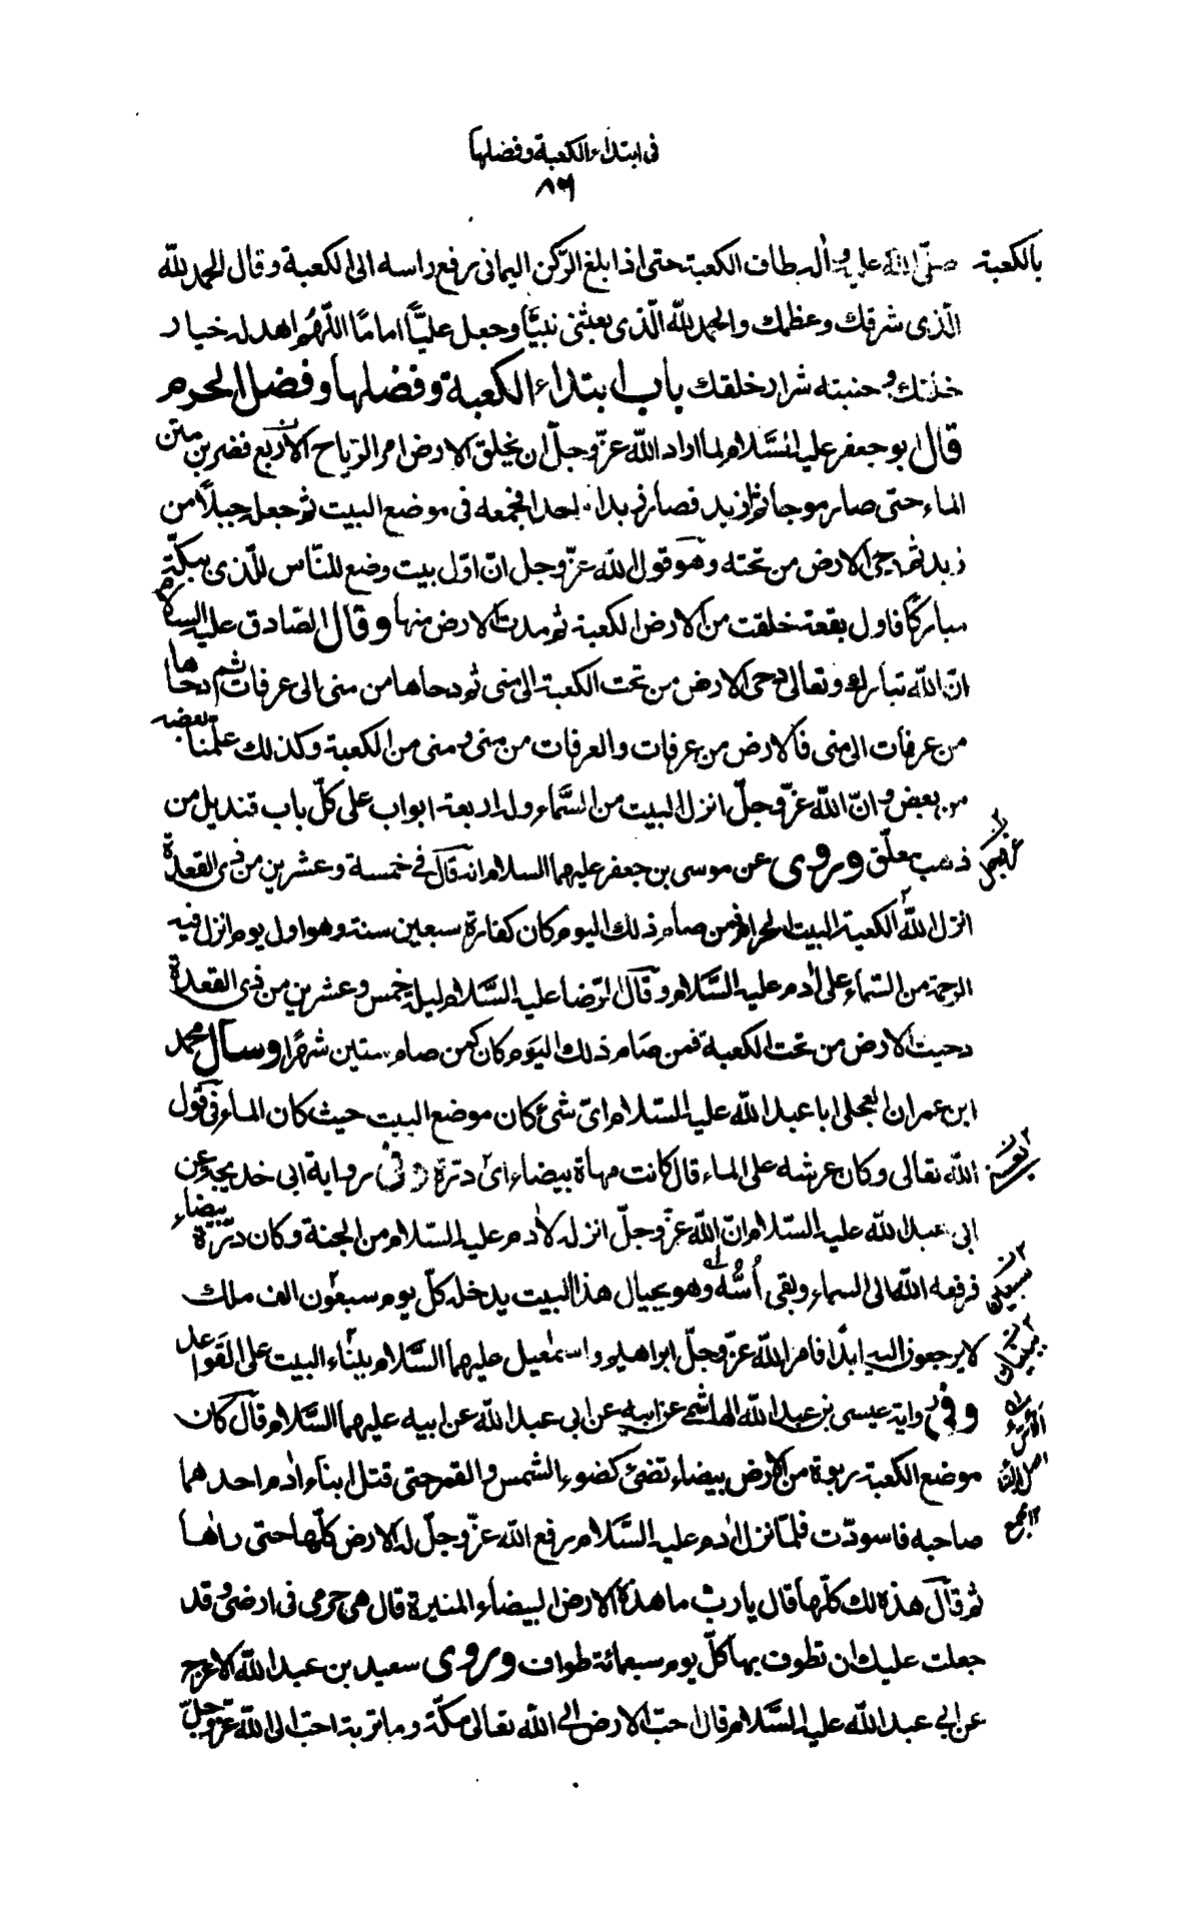 فى ابتداء الكعبة وفضلها
٨٦
بالكعبة صلّى الله عليه وآله طاف الكعبة حتى اذا بلغ الرّكن اليمانى رفع راسه الى الكعبة وقال الحمد لله
الّذى شرفك وعظمك والحمد لله الّذى بعثنى نبيًّا وجعل عليًّا امامًا اللّهمّ اهد له خيار
خلقك وجنبه شرار خلقك باب ابتداء الكعبة وفضلها وفضل الحرم
قال ابو جعفر عليه السّلام لما اراد الله عزّ وجلّ ان يخلق الارض امر الرّياح الاربع فضربن متن
الماء حتى صار موجا ثمّ ازبد فصار زبدا واحدا فجمعه فى موضع البيت ثم جعله جبلًا من
زبد ثم دحى الارض من تحته وهو قول الله عزّ وجل انّ اوّل بيت وضع للنّاس للّذى ببكّة
مباركًا فاول بقعة خلقت من الارض الكعبة ثم مدت الارض منها وقال الصّادق عليه السلام
انّ الله تبارك وتعالى دحى الارض من تحت الكعبة الى منى ثم دحاها من منى الى عرفات ثم دحاها
من عرفات الى منى فالارض من عرفات والعرفات من منى ومنى من الكعبة وكذلك علمنا بعضه
من بعض وانّ الله عزّ وجلّ انزل البيت من السّماء وله اربعة ابواب على كلّ باب قنديل من
ذهب معلّق وروى عن موسى بن جعفر عليهما السلام انه قال فى خمسة وعشرين من ذى القعدة
انزل الله الكعبة البيت الحرام فمن صام ذلك اليوم كان كفارة سبعين سنة وهو اول يوم انزل فيه
الرحمة من السّماء على ادم عليه السّلام وقال الرّضا عليه السّلام ليلة خمس وعشرين من ذى القعدة
دحيت الارض من تحت الكعبة فمن صام ذلك اليوم كان كمن صام ستين شهرًا وسأل محمد
ابن عمران العجلى ابا عبد الله عليه السّلام اىّ شئ كان موضع البيت حيث كان الماء فى قول
الله تعالى وكان عرشه على الماء قال كانت مهاة بيضاء اى درّة وفى رواية ابى خديجة عن
ابى عبد الله عليه السّلام انّ الله عزّ وجلّ انزله لادم عليه السّلام من الجنة وكان درّة بيضاء
فرفعه الله الى السماء وبقى أسّه وهو بحيال هذا البيت يدخله كلّ يوم سبعون الف ملك
لا يرجعون اليه ابدًا فامر الله عزّ وجلّ ابراهيم واسمعيل عليهما السّلام ببناء البيت على القواعد
وفى رواية عيسى بن عبد الله الهاشمى عن ابيه عن ابى عبد الله عن ابيه عليهما السّلام قال كان
موضع الكعبة ربوة من الارض بيضاء تضئ كضوء الشمس والقمر حتى قتل ابنا ادم احدهما
صاحبه فاسودّت فلمّا نزل ادم عليه السّلام رفع الله عزّ وجلّ له الارض كلّها حتى راها
ثم قال هذه لك كلّها قال يا ربّ ما هذه الارض البيضاء المنيرة قال هى حرمى فى ارضى وقد
جعلت عليك ان تطوف بها كلّ يوم سبعمائة طواف وروى سعيد بن عبد الله الاعرج
عن ابى عبد الله عليه السّلام قال احبّ الارض الى الله تعالى مكّة وما تربة احبّ الى الله عزّ وجلّ